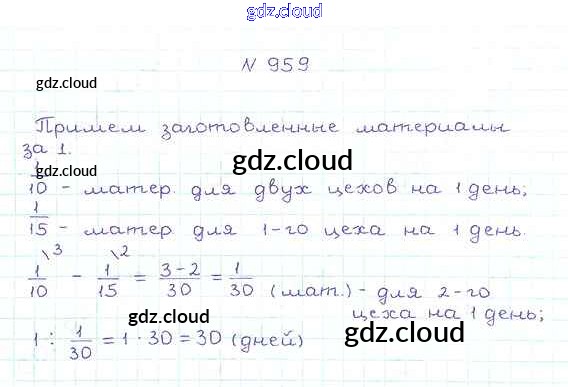 gdz.cloud
N 959
gdz.cloud
Примем заготовленные материалы
за 1.
gdz.cloud
1/10 - матер. для двух цехов на 1 день;
1/15 - матер. для 1-го цеха на 1 день.
1/10 \3 - 1/15 \2 = 3-2/30 = 1/30 (мат.) - для 2-го
цеха на 1 день;
gdz.cloud
gdz.cloud
1 : 1/30 = 1 · 30 = 30 (дней)